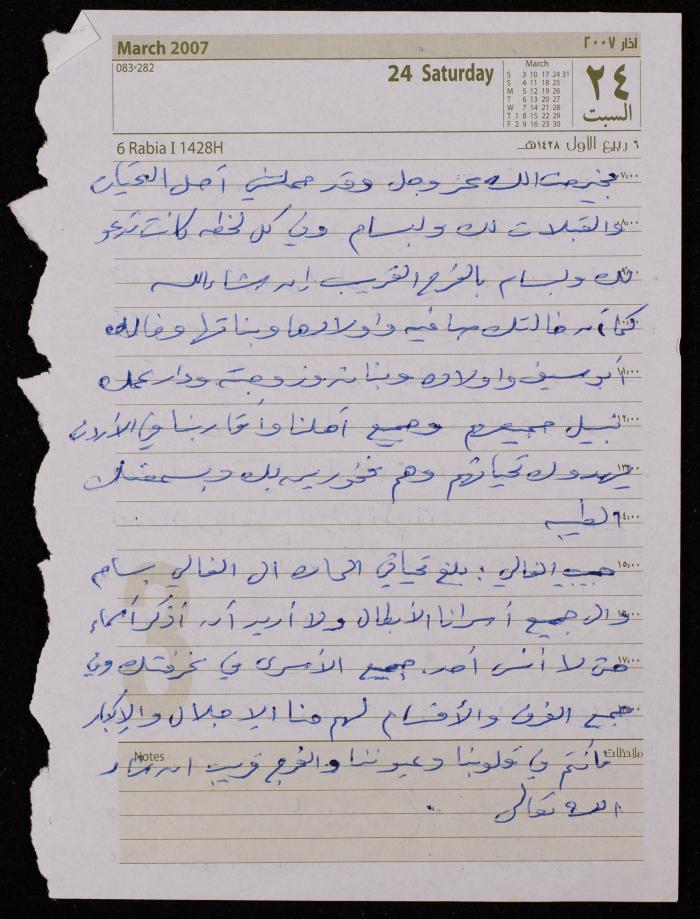 March 2007 اذار ٢٠٠٧
083-282
24 Saturday
March
S 3 10 17 24 31
S 4 11 18 25
M 5 12 19 26
T 6 13 20 27
W 7 14 21 28
T 1 8 15 22 29
F 2 9 16 23 30
٢٤
السبت
6 Rabia I 1428H ٦ ربيع الأول ١٤٢٨هـ
الله عز وجل وقد حملتني أجمل التحيات
والقبلات لك ولبسام وفي كل لحظة كانت تدعو
لك ولبسام بالفرج القريب إن شاء الله
كما أن خالتك صافيه واولادها وبناتها وخالك
أبو سيف واولاده وبناته وزوجته ودار عمك
نبيل جميعهم وجميع أهلنا وأقاربنا في الأردن
يهدونك تحياتهم وهم فخورين بك وبسمعتك
الطيبه
حبيبي الغالي : بلغ تحياتي الحارة الى الغالي بسام
والى جميع أسرانا الأبطال ولا أريد أن أذكر أسماء
حتى لا أنسى أحد. جميع الأسرى في غرفتك وفي
جميع الغرف والأقسام لهم منا الإجلال والإكبار
Notes ملاحظات
فأنتم في قلوبنا وعيوننا والفرج قريب ان شاء
الله تعالى